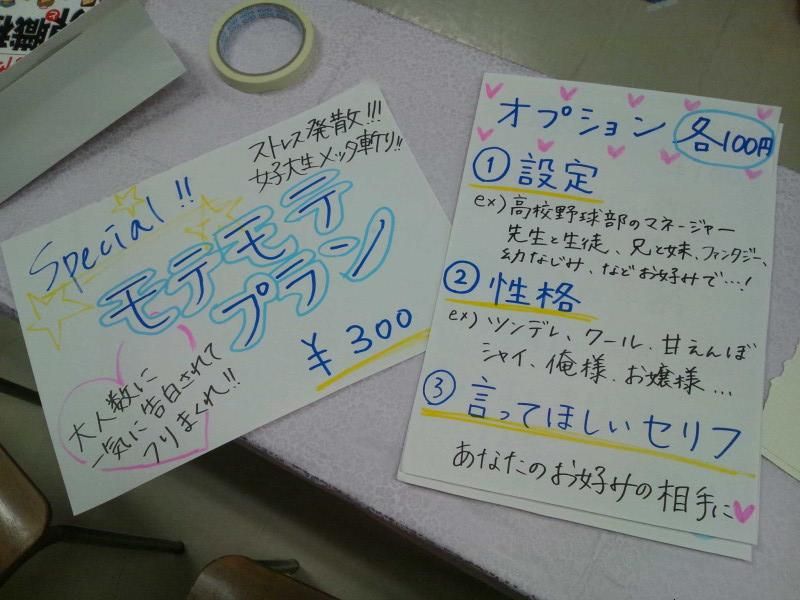 職
Special!!
ストレス発散!!!
女子大生メッタ斬り!!
モテモテ
プラン
¥300
大人数に
一気に告白されて
フリまくれ!!
オプション 各100円
① 設定
ex) 高校野球部のマネージャー
先生と生徒、兄と妹、ファンタジー、
幼なじみ、などお好みで…!
② 性格
ex) ツンデレ、クール、甘えんぼ
シャイ、俺様、お嬢様…
③ 言ってほしいセリフ
あなたのお好みの相手に